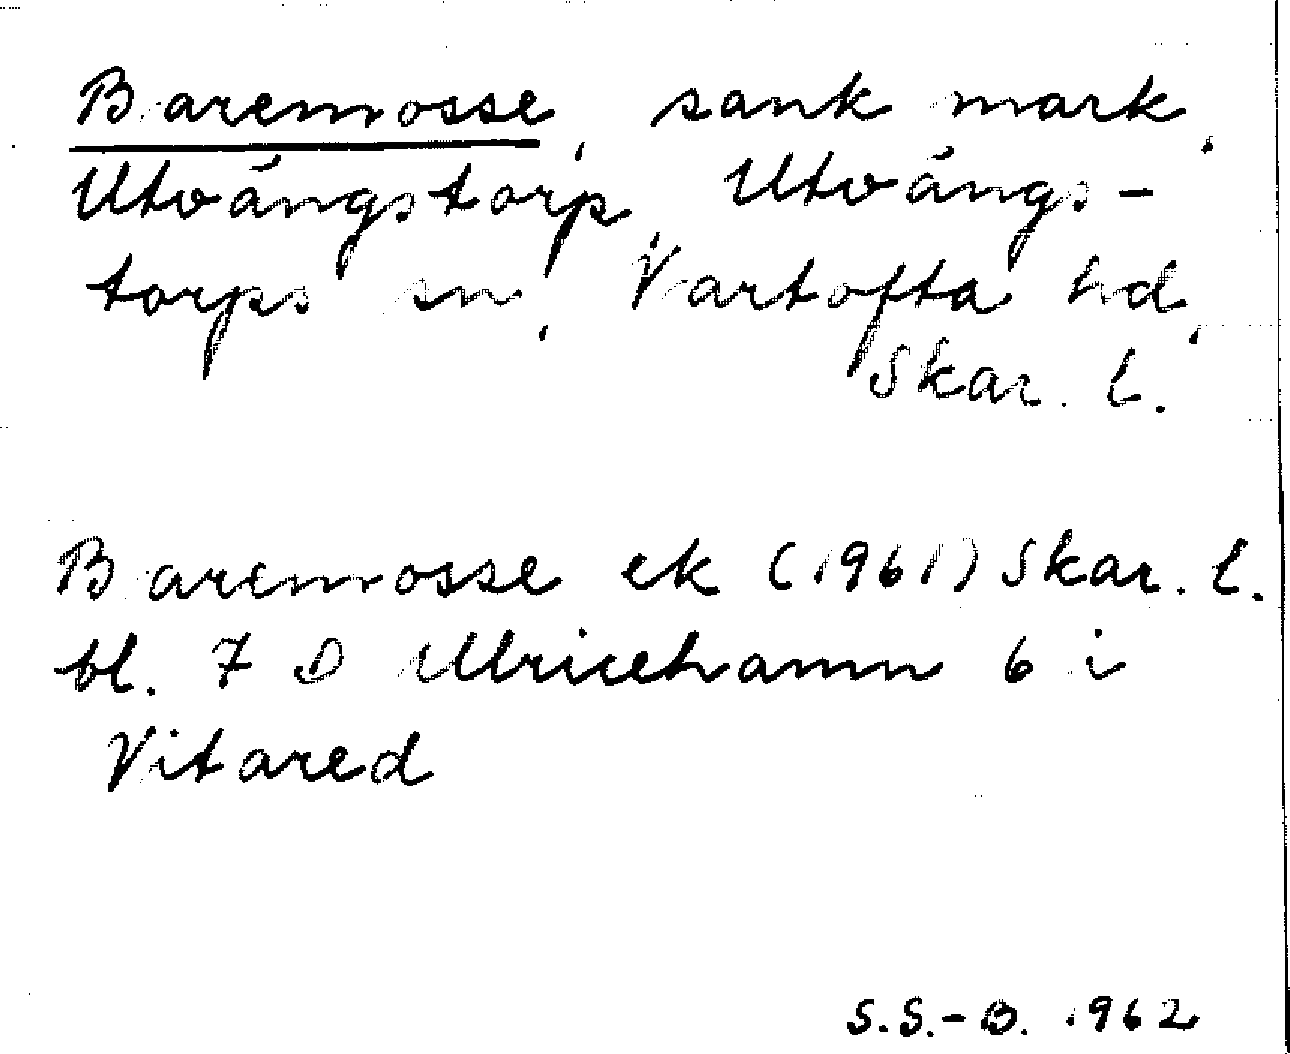 Baremosse, sank mark,
Utvängstorp, Utvängs-
torps sn, Vartofta hd,
Skar. l.
Baremosse ek (1961) Skar. l.
bl. 7 D Ulricehamn 6 i
Vitared
S.S.-B. 1962